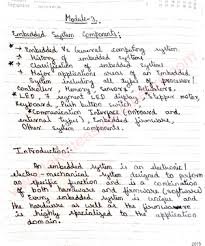 Module-3
Embedded System Components:
→ Embedded Vs General computing system
→ History of embedded systems
* → Classification of Embedded systems
* → Major application areas of an Embedded
System including all types of processor/
controller, Memory, Sensors, Actuators,
* LED, 7 segment LED display, Stepper motor,
Keyboard, Push button switch,
* Communication Interface (onboard and
external types), Embedded firmware,
Other system components.
Introduction:
An embedded system is an electronic/
electro-mechanical system designed to perform
an specific function and is a combination
of both hardware and firmware (software)
Every embedded system is unique, and
the hardware as well as the firmware is
highly specialized to the application
domain.
2019